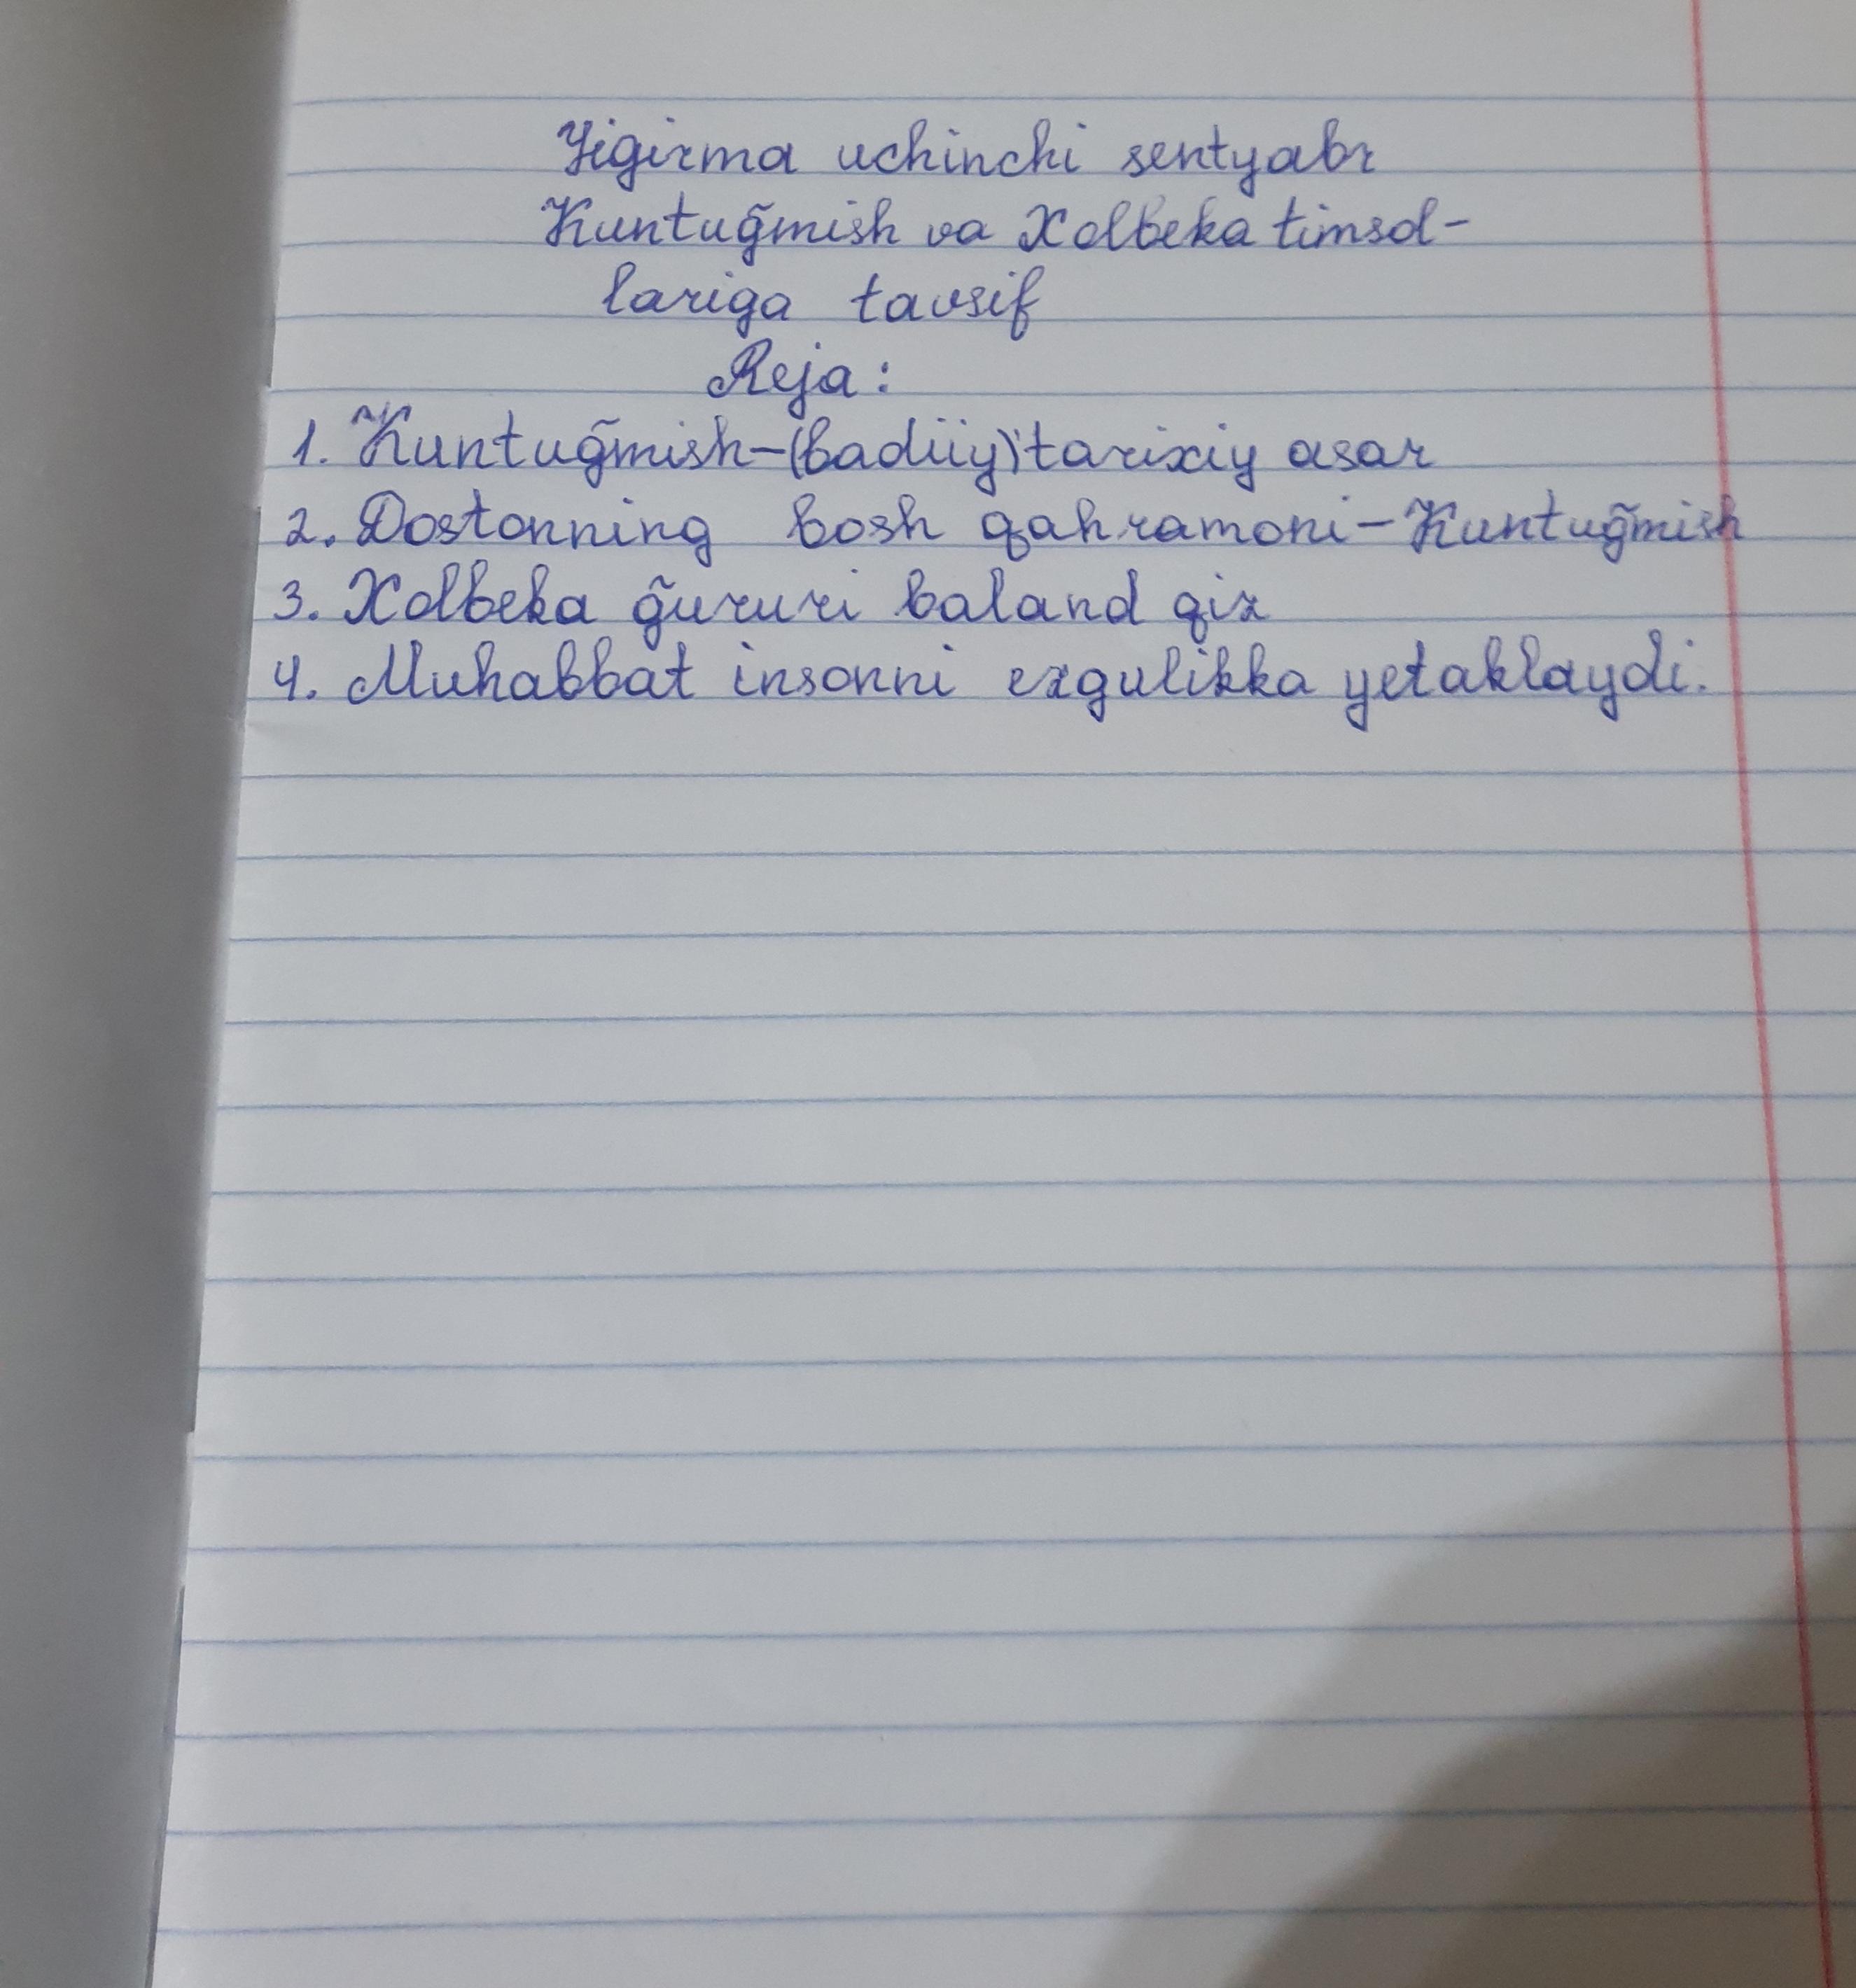 Yigirma uchinchi sentyabr
Kuntug̃mish va Xolbeka timsol-
lariga tavsif
Reja:
1. Kuntug̃mish-(badiiy) tarixiy asar
2. Dostonning bosh qahramoni-Kuntug̃mish
3. Xolbeka g̃ururi baland qiz
4. Muhabbat insonni ezgulikka yetaklaydi.